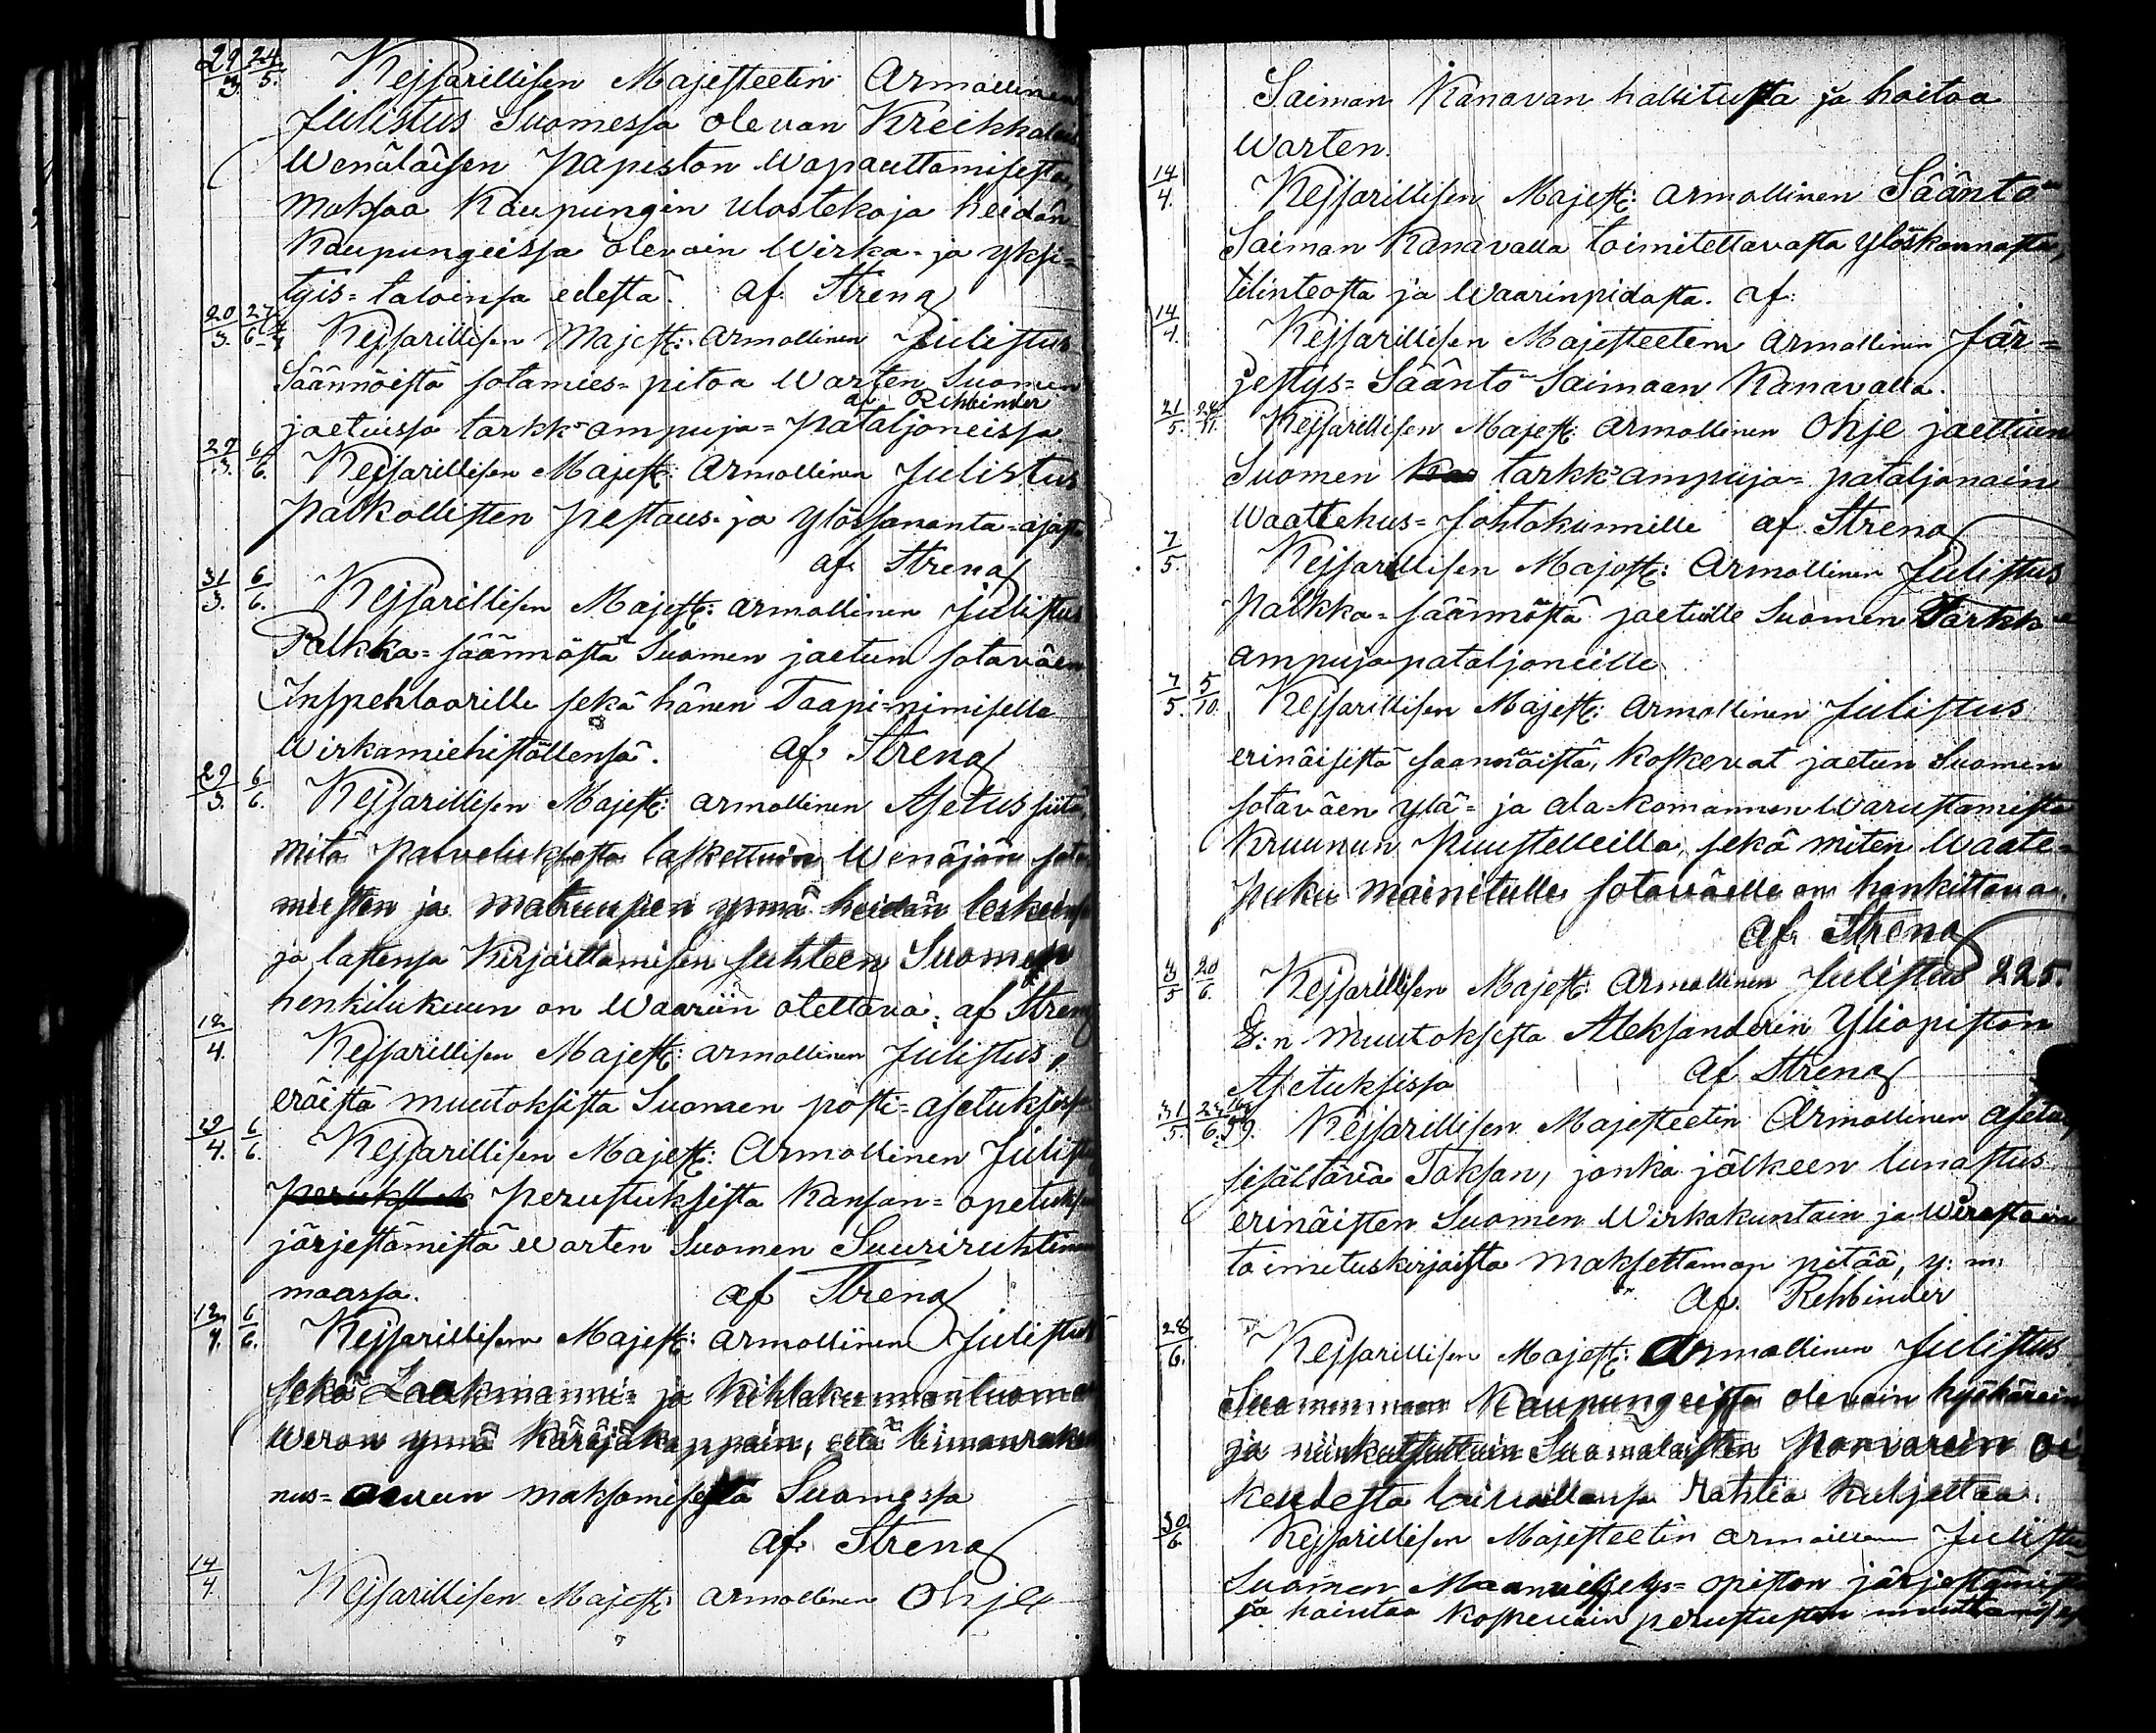 29/3. 24/5. Kejsarillisen Majesteetin Armollinen
Julistus Suomessa olevan Kreikkalais
Wenäläisen Papiston Wapauttamisesta,
maksaa Kaupungin ulostekoja heidän
Kaupungeissa olevain Wirka- ja yksi=
tyis= taloinsa edestä. af. Streng
20/3. 27/6. Kejsarillisen Majest: Armollinen Julistus
Säännöistä sotamies= pitoa Warten Suomen
af Rehbinder
jaetuissa tarkk-ampuja= pataljoneissa
27/3. 6/6. Kejsarillisen Majest: Armollinen Julistus
Palkollisten Pestaus- ja Ylössananta-ajasta
af. Streng
31/3. 6/6. Kejsarillisen Majest: armollinen Julistus
Palkka= säännöstä Suomen jaetun sotaväen
Inspehtoorille sekä hänen Taapi=nimiselle
Wirkamiehistöllensä. af. Streng
29/3. 6/6. Kejsarillisen Majest: armollinen Asetus siitä,
mitä palveluksesta laskettuin Wenäjän sota
miesten ja matruusien ynnä heidän leskeinsä
ja lastensa Kirjoittamisen suhteen Suomen
henkilukuun on Waariin otettava. af Streng
12/4. Kejsarillisen Majest: armollinen Julistus,
eräistä muutoksista Suomen posti= asetuksissa
12/4. 6/6. Kejsarillisen Majest: Armollinen Julistus
perustuksista Kansan= opetuksen
järjestämistä warten Suomen Suuriruhtinan
maassa. af Streng
12/4. 6/6. Kejsarillisen Majest: armollinen Julistus
sekä Laakmanni= ja Kihlakunnantuomari
Weron ynnä Käräjäkappain, että
nus= avun maksamisesta Suomessa
af. Streng
14/4 Kejsarillisen Majest: armollinen Ohje
Saiman Kanavan hallitusta ja hoitoa
warten.
14/4. Kejsarillisen Majest: armollinen Sääntö
Saiman Kanavalla toimitettavasta Ylöskannosta,
tilinteosta ja Waarinpidosta. af:
14/4. Kejsarillisen Majesteetin armollinen Jär=
jestys= Sääntö Saimaan Kanavalla.
21/5. 28/11. Kejsarillisen Majest: armollinen Ohje jaettuin
Suomen tarkk-ampuja= pataljonain
Waattehus= Johtokunnille af Streng
7/5. Kejsarillisen Majest: Armollinen Julistus
Palkka= säännöstä jaetuille Suomen Tarkk=
ampuja pataljoneille
7/5. 5/10. Kejsarillisen Majest: armollinen Julistus
erinäisistä säännöistä, koskevat jaetun Suomen
sotaväen ylä= ja ala=komannon Warustamista
Kruunun Puustelleilla, sekä miten Waate=
puku mainitulle sotaväelle on hankittava.
af. Streng
3/5 20/6. Kejsarillisen Majest: Armollinen Julistus 225.
§:n muutoksesta Aleksanderin Yliopiston
Asetuksissa af Streng
31/5. Kejsarillisen Majesteetin Armollinen asetus,
sisältävä Taksan, jonka jälkeen lunastus
erinäisten Suomen Wirkakuntain ja Wirastoin
toimituskirjoista maksettaman pitää, y. m.
Af. Rehbinder
28/6. Kejsarillisen Majest: Armollinen Julistus
Suomenmaan Kaupungeissa olevain
ja niinkutsuttuin Suomalaisten Porvarein oi
keudesta laivoillansa Rahtia kuljettaa.
30/6. Kejsarillisen Majesteetin armollinen Julistus
Suomen Maanviljelys= opiston järjestämistä
ja hointaa koskevain perustusten